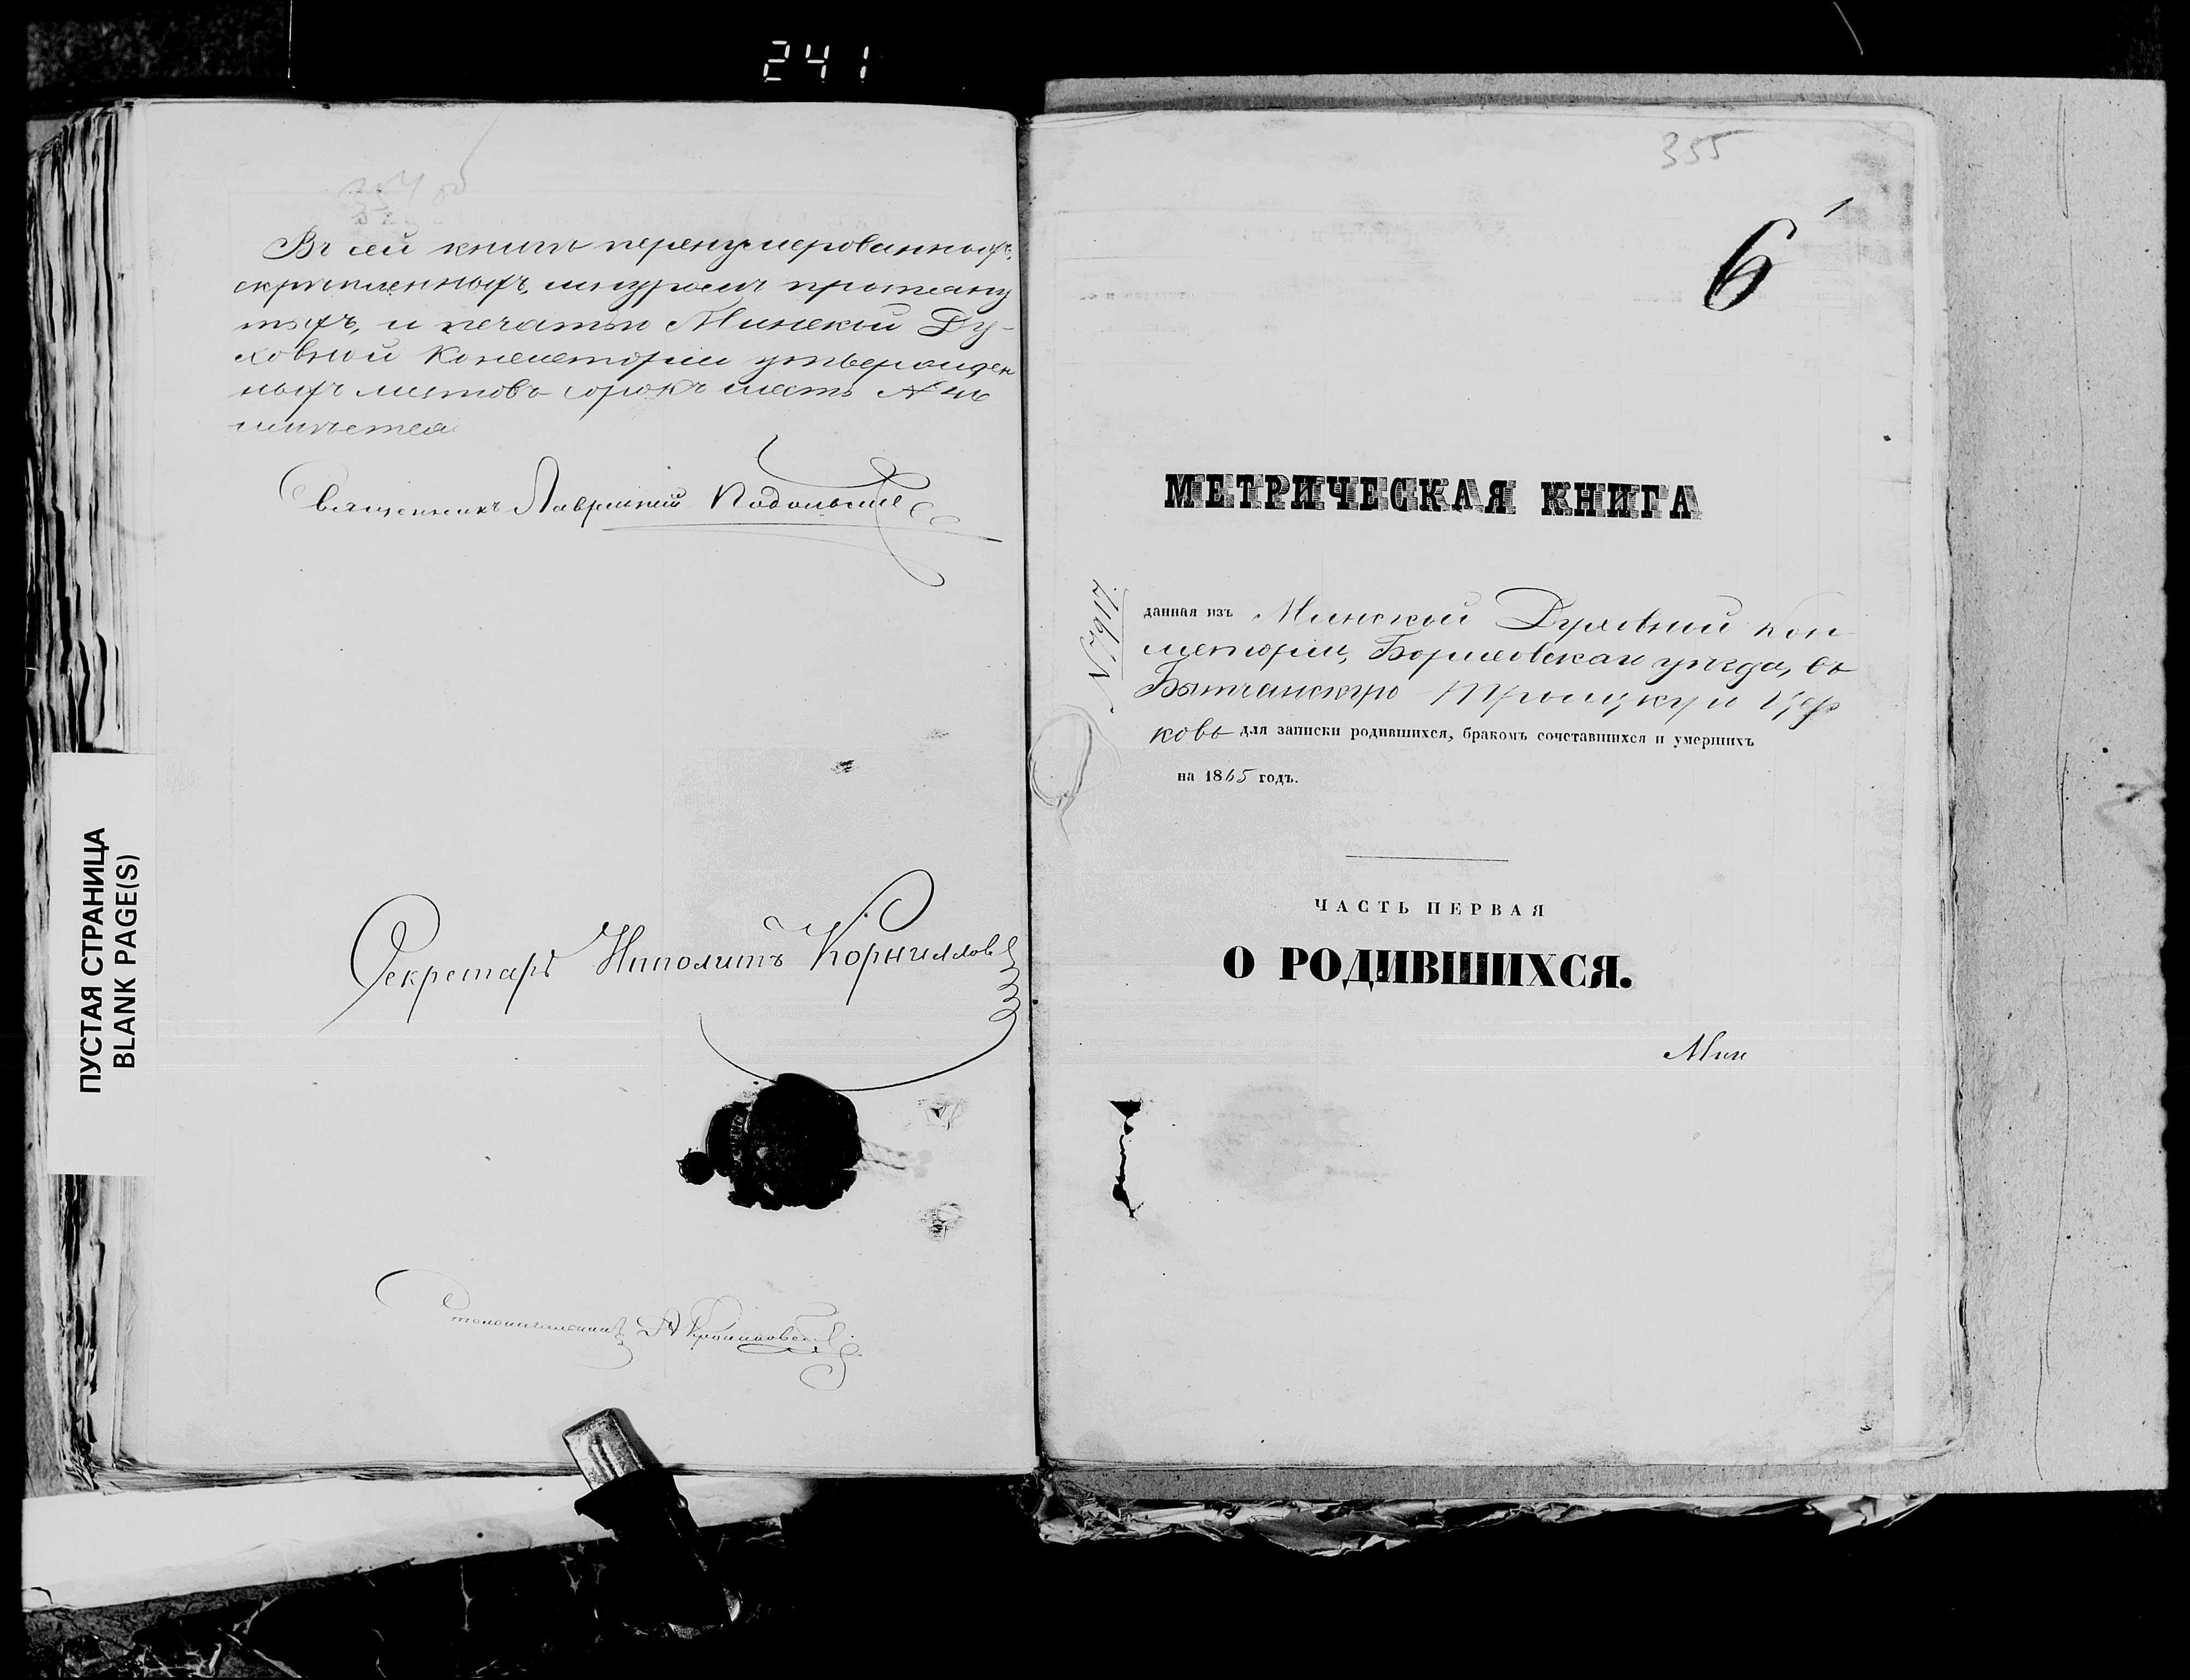 241
354 об
Въ сей книгѣ перенумерованныхъ,
скрѣпленныхъ, шнуромъ протяну
тыхъ, и печатью Минской Ду-
ховной Консисторіи утвержден
ныхъ листовъ сорокъ шесть № 46
числится
Священникъ Лаврентій Подольскій
Секретарь Ипполитъ Корниллов
Столоначальникъ
ПУСТАЯ СТРАНИЦА
BLANK PAGE(S)
355
1
6
МЕТРИЧЕСКАЯ КНИГА
№ 7917.
данная изъ Минской Духовной Кон
систоріи, Борисовскаго уѣзда, въ
Бытчанскую Троицкую Цер
ковь для записки родившихся, бракомъ сочетавшихся и умершихъ
на 1865 годъ.
ЧАСТЬ ПЕРВАЯ
О РОДИВШИХСЯ.
Мин